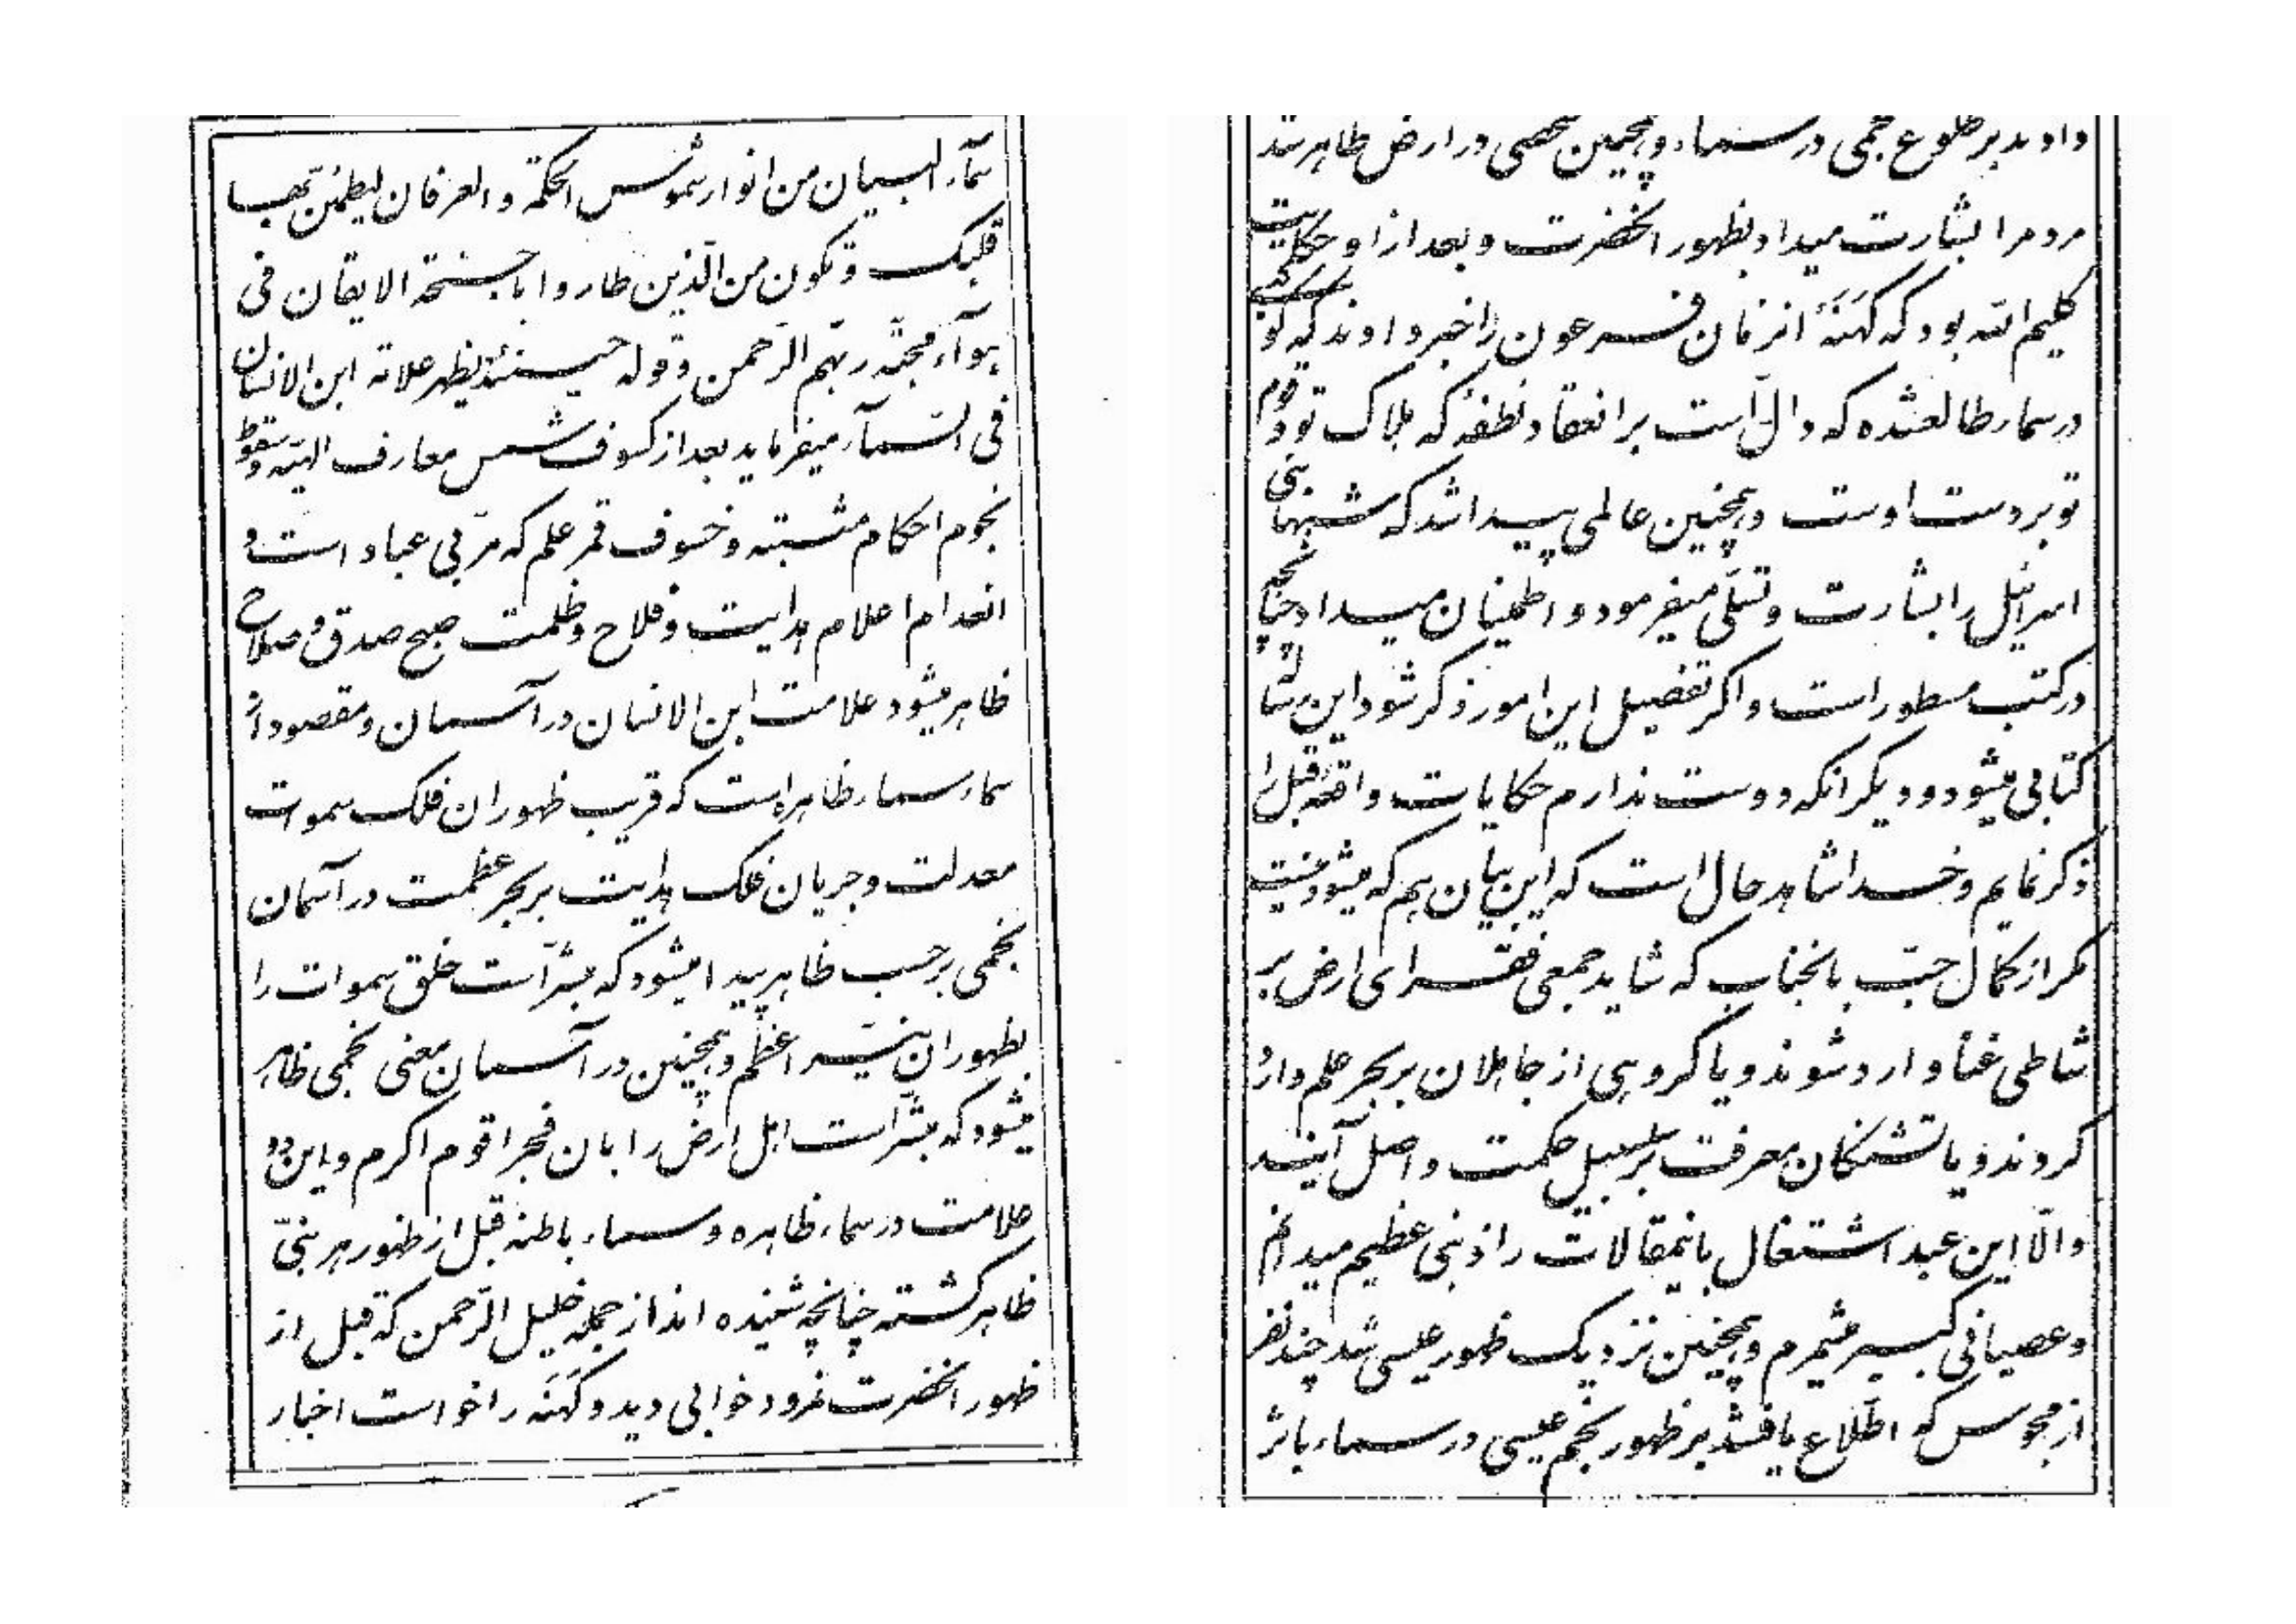 سمآء البیان من انوار شموس الحکمة و العرفان لیطمئن بها
قلبک و تکون من الّذین طاروا باجنحة الایقان فی
هوآء محبّة ربّهم الرّحمن و قوله حینئذ یظهر علامة ابن الانسان
فی السّمآء میفرماید بعد از کسوف شمس معارف الهیّه و سقوط
نجوم احکام مثبته و خسوف قمر علم که مربّی عباد است و
انعدام اعلام هدایت و فلاح و ظلمت صبح صدق و صلاح
ظاهر میشود علامت ابن الانسان در آسمان و مقصود از
سماء سماء ظاهره است که قریب ظهور ان فلک سموات
معدلت و جریان فلک هدایت بر بحر عظمت در آسمان
نجمی بر حسب ظاهر پیدا میشود که مبشّر است خلق سموات را
بظهور ان نیّر اعظم و همچنین در آسمان معنی نجمی ظاهر
میشود که مبشّر است اهل ارض را بان فجر اقوم اکرم و این دو
علامت در سماء ظاهره و سماء باطنه قبل از ظهور هر نبیّ
ظاهر کشته چنانچه شنیده اند از جمله خلیل الرّحمن که قبل از
ظهور انحضرت نمرود خوابی دید و کهَنَه را خواست اخبار
دادند بر طلوع نجمی در سماء و همچنین شخصی در ارض ظاهر شد
مردمرا بشارت میداد بظهور انحضرت و بعد از او حکایت
کلیم الله بود که کهَنَهٔ انزمان فرعون را خبر دادند که کوکبی
در سماء طالعشده که دالّ است بر انعقاد نطفهٔ که هلاک تو و قوم
تو بر دست اوست و همچنین عالمی پیدا شد که شبها بنی
اسرائیل را بشارت و تسلّی میفرمود و اطمینان میداد چنانچه
در کتب مسطور است و اکر تفصیل این امور ذکر شود این رساله
کتابی میشود و دیکر انکه دوست ندارم حکایات واقعهٔ قبل را
ذکر نمایم و خدا شاهد حال است که این بیان هم که میشود نیست
مکر از کمال حبّ بانجناب که شاید جمعی فقرای ارض بر
شاطی غنا وارد شوند و یا کروهی از جاهلان بر بحر علم وارد
کردند و یا تشنکان معرفت بر سلسبیل حکمت واصل آیند
والّا این عبد اشتغال باینمقالات را ذنبی عظیم میدانم
و عصیانی کبیر میشمرم و همچنین نزدیک ظهور عیسی شد چند نفر
از مجوس که اطّلاع یافتند بر ظهور نجم عیسی در سماء باثر